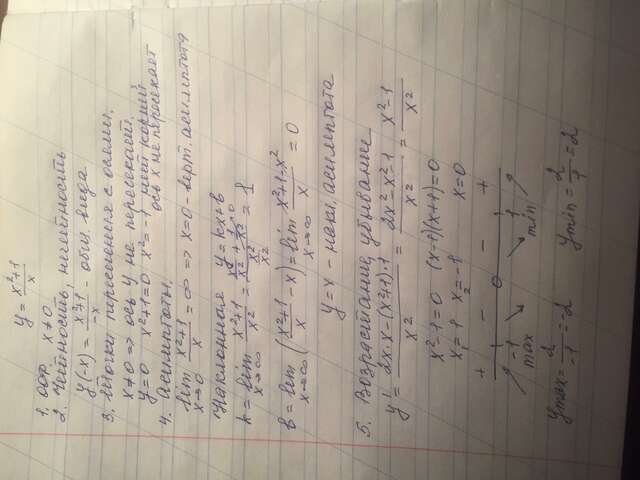 y = x²+1/x
1. ООФ x≠0
2. Чётность, нечётность
y(-x) = x²+1/-x - общ. вида
3. Точки пересечения с осями.
x≠0 => ось y не пересекает.
y=0 x²+1=0 x²=-1 нет корней
ось x не пересекает
4. Асимптоты.
lim x→0 x²+1/x = ∞ => x=0 - верт. асимптота
Наклонная y=kx+b
k = lim x→∞ x²+1/x² = x²/x² + 1/x² →0 / x²/x² = 1
b = lim x→∞ (x²+1/x - x) = lim x→∞ x²+1-x²/x = 0
y=x - накл. асимптота
5. Возрастание, убывание
y' = 2x·x-(x²+1)·1/x² = 2x²-x²-1/x² = x²-1/x²
x²-1=0 (x-1)(x+1)=0
x₁=1 x₂=-1 x=0
+ - - +
-1 0 1
max min
ymax = 2/-1 = -2 ymin = 2/1 = 2